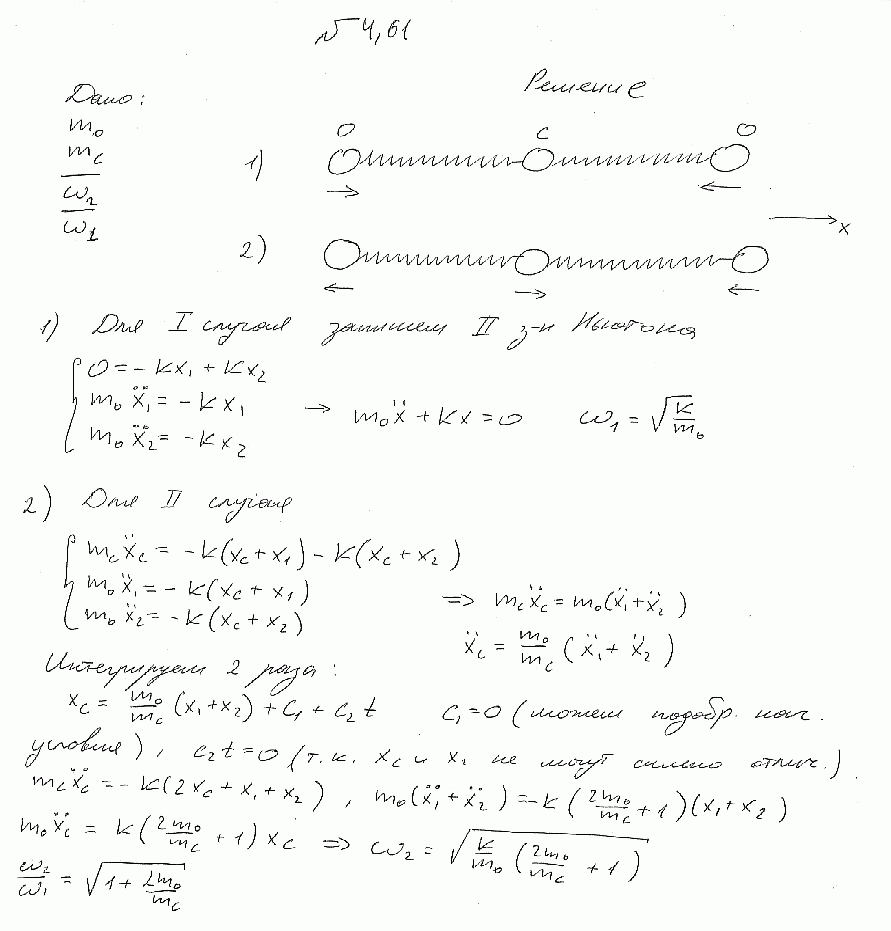 № 4,61
Дано:
m₀
m_c
ω₂
ω₁
Решение
O C O
1)
x
2)
1) Для I случая запишем II з-н Ньютона
0 = - kx₁ + kx₂
m₀ẍ₁ = - kx₁ → m₀ẍ + kx = 0 ω₁ = √(k/m₀)
m₀ẍ₂ = - kx₂
2) Для II случая
m_cẍ_c = - k(x_c + x₁) - k(x_c + x₂)
m₀ẍ₁ = - k(x_c + x₁) => m_cẍ_c = m₀(ẍ₁ + ẍ₂)
m₀ẍ₂ = - k(x_c + x₂)
ẍ_c = m₀/m_c (ẍ₁ + ẍ₂)
Интегрируем 2 раза :
x_c = m₀/m_c (x₁+x₂) + C₁ + C₂ t C₁ = 0 (можем подобр. нач.
условие), C₂t = 0 (т.к. x_c и x₁ не могут сильно отлич.)
m_cẍ_c = - k(2x_c + x₁ + x₂), m₀(ẍ₁ + ẍ₂) = -k(2m₀/m_c + 1)(x₁ + x₂)
m₀ẍ_c = k(2m₀/m_c + 1) x_c => ω₂ = √(k/m₀ (2m₀/m_c + 1))
ω₂/ω₁ = √(1 + 2m₀/m_c)